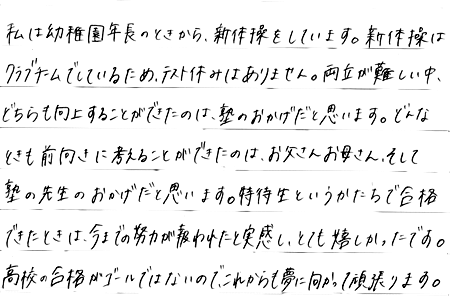 私は幼稚園年長のときから、新体操をしています。新体操は
クラブチームでしているため、テスト休みはありません。両立が難しい中、
どちらも向上することができたのは、塾のおかげだと思います。どんな
ときも前向きに考えることができたのは、お父さんお母さん、そして
塾の先生のおかげだと思います。特待生というかたちで合格
できたときは、今までの努力が報われたと実感し、とても嬉しかったです。
高校の合格がゴールではないので、これからも夢に向かって頑張ります。